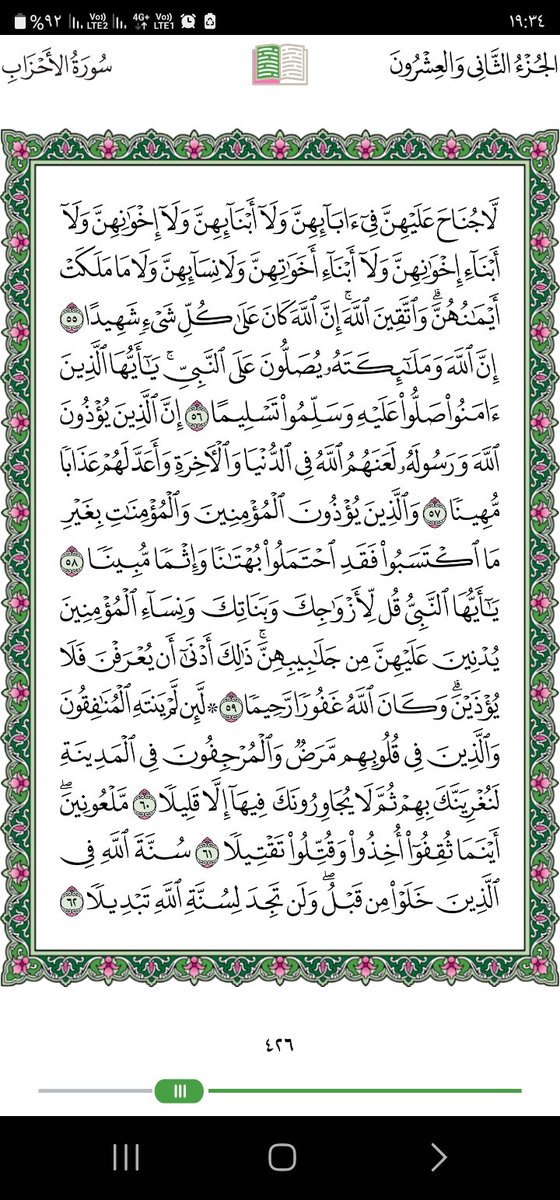 %٩٢ Vo)) LTE2 4G+ Vo)) LTE1 ١٩:٣٤
الجُزْءُ الثَّانِي وَالعِشْرُونَ سُورَةُ الأَحْزَابِ
لَّا جُنَاحَ عَلَيْهِنَّ فِيٓ ءَابَآئِهِنَّ وَلَآ أَبْنَآئِهِنَّ وَلَآ إِخْوَٰنِهِنَّ وَلَآ
أَبْنَآءِ إِخْوَٰنِهِنَّ وَلَآ أَبْنَآءِ أَخَوَٰتِهِنَّ وَلَا نِسَآئِهِنَّ وَلَا مَا مَلَكَتْ
أَيْمَٰنُهُنَّۗ وَٱتَّقِينَ ٱللَّهَۚ إِنَّ ٱللَّهَ كَانَ عَلَىٰ كُلِّ شَيْءٍ شَهِيدًا ٥٥
إِنَّ ٱللَّهَ وَمَلَٰٓئِكَتَهُۥ يُصَلُّونَ عَلَى ٱلنَّبِيِّۚ يَٰٓأَيُّهَا ٱلَّذِينَ
ءَامَنُوا۟ صَلُّوا۟ عَلَيْهِ وَسَلِّمُوا۟ تَسْلِيمًا ٥٦ إِنَّ ٱلَّذِينَ يُؤْذُونَ
ٱللَّهَ وَرَسُولَهُۥ لَعَنَهُمُ ٱللَّهُ فِي ٱلدُّنْيَا وَٱلْأٓخِرَةِ وَأَعَدَّ لَهُمْ عَذَابًا
مُّهِينًا ٥٧ وَٱلَّذِينَ يُؤْذُونَ ٱلْمُؤْمِنِينَ وَٱلْمُؤْمِنَٰتِ بِغَيْرِ
مَا ٱكْتَسَبُوا۟ فَقَدِ ٱحْتَمَلُوا۟ بُهْتَٰنًا وَإِثْمًا مُّبِينًا ٥٨
يَٰٓأَيُّهَا ٱلنَّبِيُّ قُل لِّأَزْوَٰجِكَ وَبَنَاتِكَ وَنِسَآءِ ٱلْمُؤْمِنِينَ
يُدْنِينَ عَلَيْهِنَّ مِن جَلَٰبِيبِهِنَّۚ ذَٰلِكَ أَدْنَىٰٓ أَن يُعْرَفْنَ فَلَا
يُؤْذَيْنَۗ وَكَانَ ٱللَّهُ غَفُورًا رَّحِيمًا ٥٩ ۞ لَّئِن لَّمْ يَنتَهِ ٱلْمُنَٰفِقُونَ
وَٱلَّذِينَ فِي قُلُوبِهِم مَّرَضٌ وَٱلْمُرْجِفُونَ فِي ٱلْمَدِينَةِ
لَنُغْرِيَنَّكَ بِهِمْ ثُمَّ لَا يُجَاوِرُونَكَ فِيهَآ إِلَّا قَلِيلًا ٦٠ مَّلْعُونِينَۖ
أَيْنَمَا ثُقِفُوٓا۟ أُخِذُوا۟ وَقُتِّلُوا۟ تَقْتِيلًا ٦١ سُنَّةَ ٱللَّهِ فِي
ٱلَّذِينَ خَلَوْا۟ مِن قَبْلُۖ وَلَن تَجِدَ لِسُنَّةِ ٱللَّهِ تَبْدِيلًا ٦٢
٤٢٦